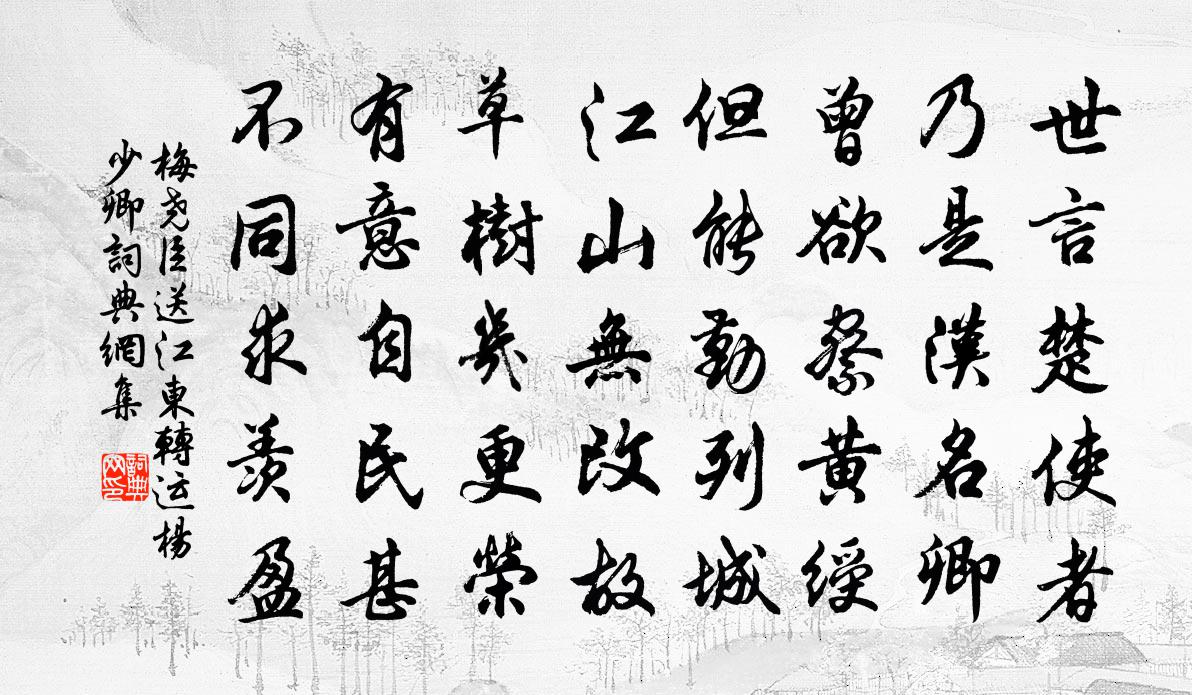 世言楚使者
乃是漢名卿
曾欲察黃綬
但能勤列城
江山無改故
草樹幾更榮
有意自民甚
不同求羨盈
梅尧臣送江東轉运楊
少卿詞典網集
詞典
网印